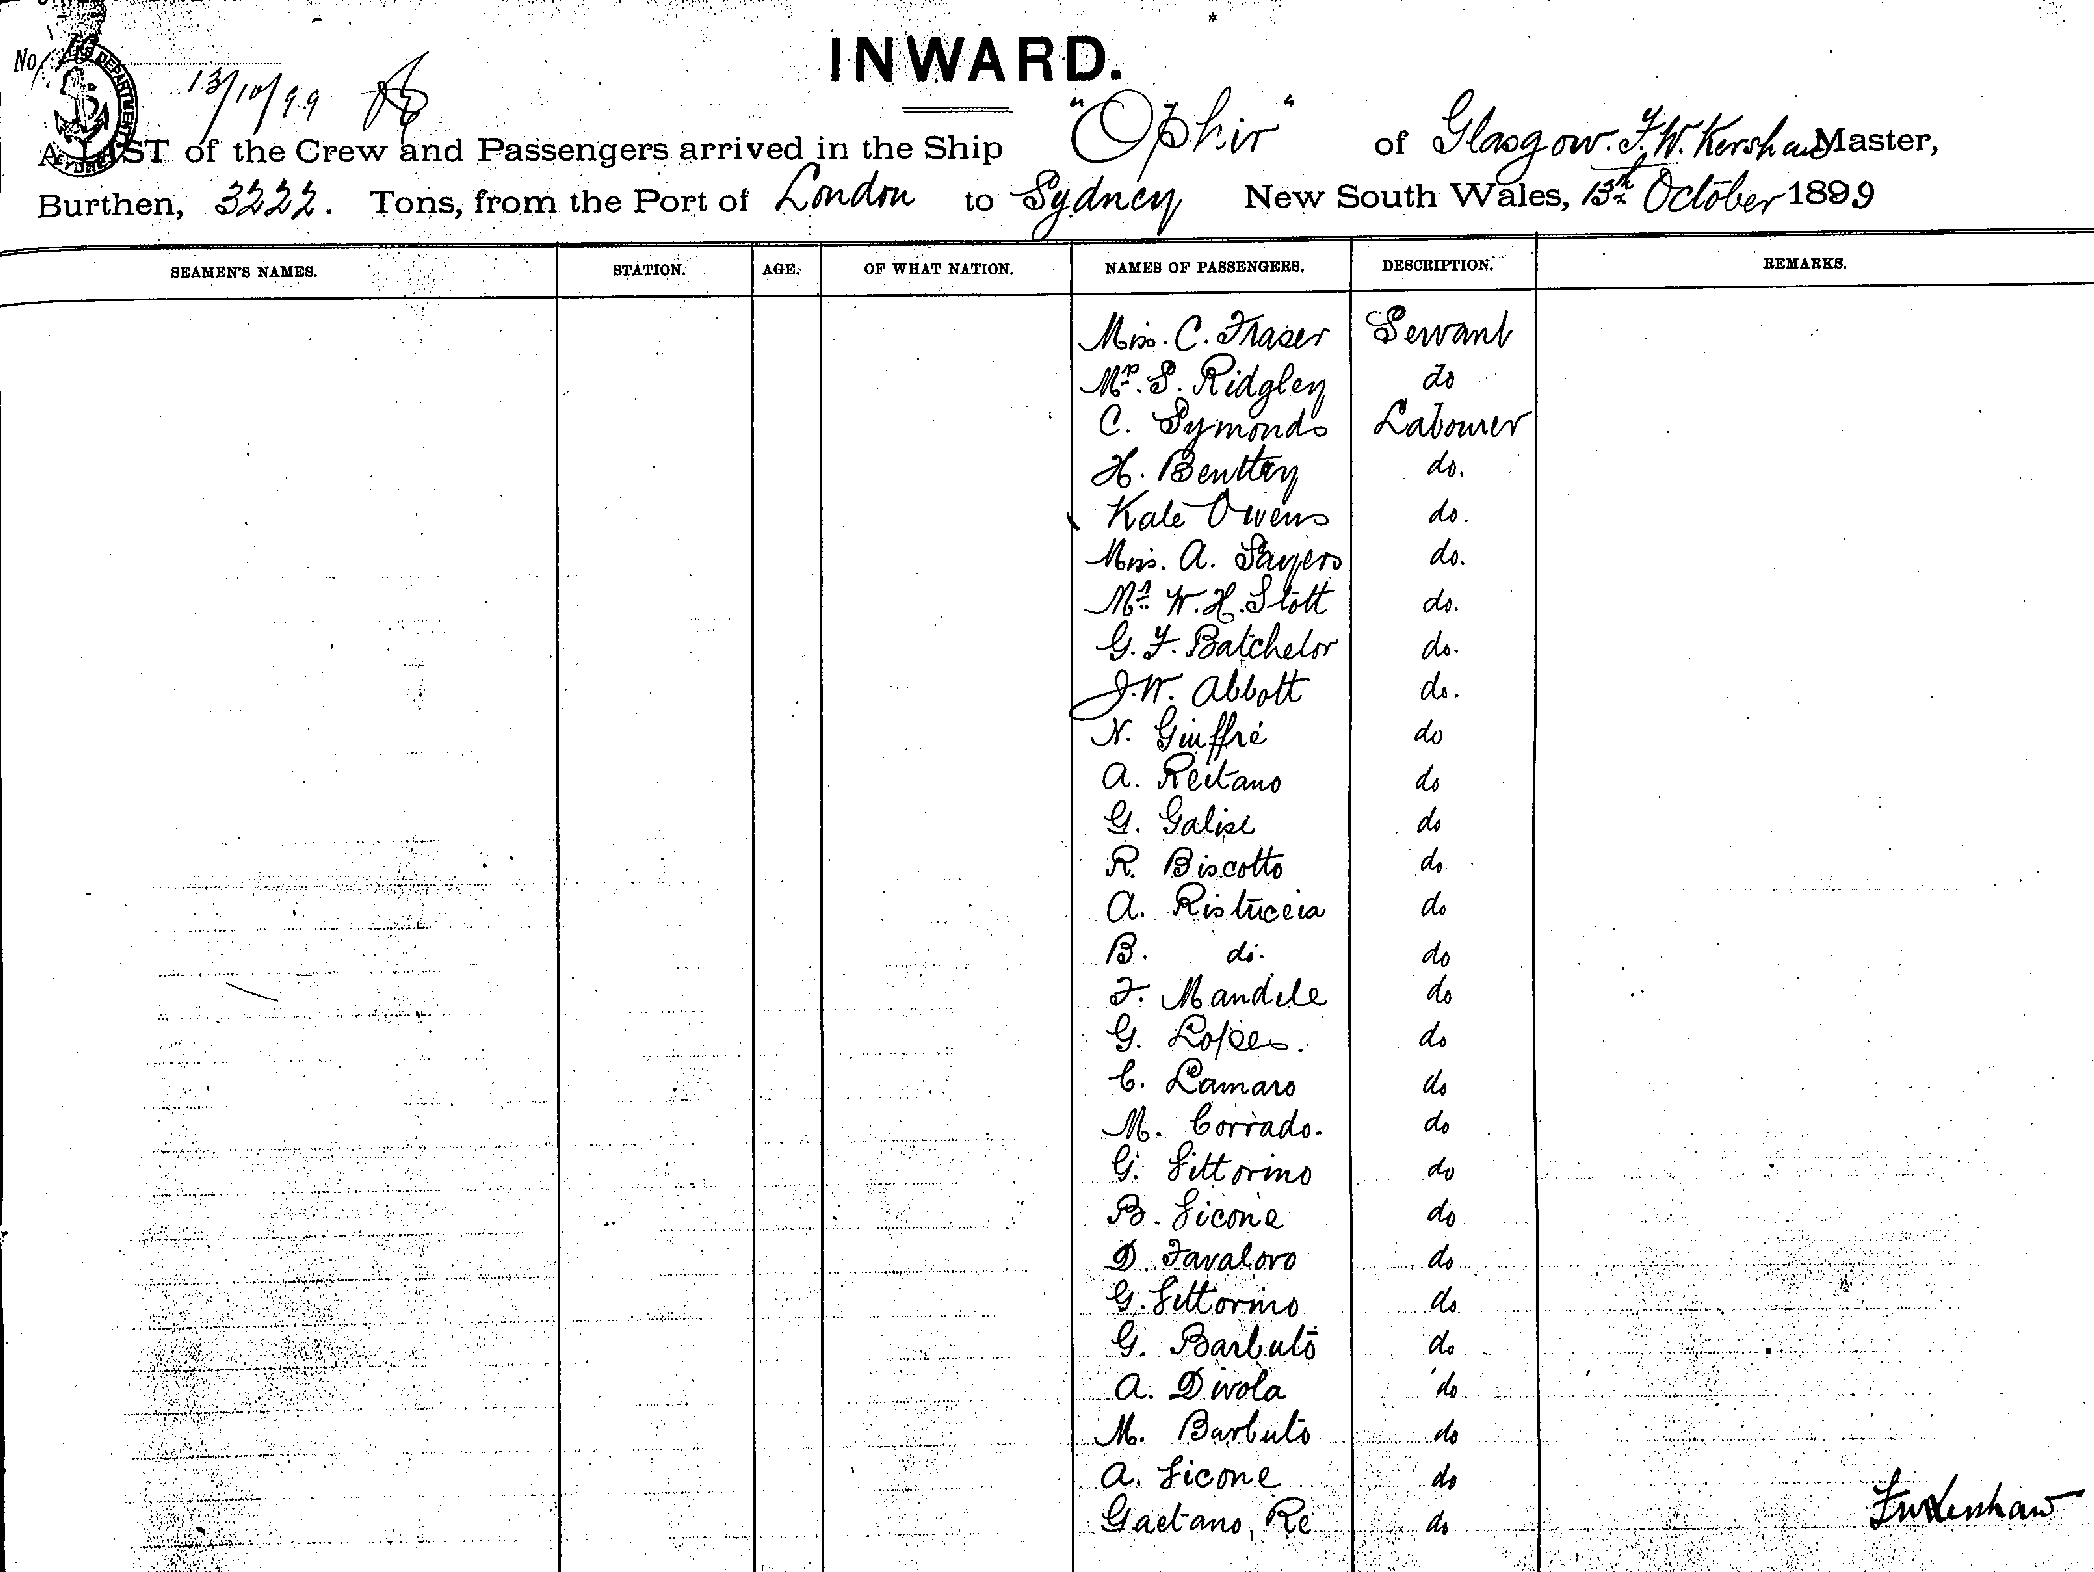 INWARD.
No
13/10/99
A LIST of the Crew and Passengers arrived in the Ship "Ophir" of Glasgow. F. W. Kershaw Master,
Burthen, 3222. Tons, from the Port of London to Sydney New South Wales, 13th October 1899
SEAMEN'S NAMES. STATION. AGE. OF WHAT NATION. NAMES OF PASSENGERS. DESCRIPTION. REMARKS.
Miss. C. Fraser Servant
Mr. S. Ridgley do
C. Symonds Labourer
H. Benttey do.
Kate Owens do.
Miss. A. Sayers do.
Mr. W. H. Stott do.
G. F. Batchelor do.
J. W. Abbott do.
N. Giuffré do
A. Reitano do
G. Galise do
R. Biscotto do
A. Ristuccia do
B. do. do
F. Mandile do
G. Lopes. do
C. Lamaro do
M. Corrado. do
G. Sittorino do
B. Sicone do
D. Favaloro do
G. Sittorino do
G. Barbuto do
A. Divola do
M. Barbuto do
A. Sicone do
Gaetano, Re do
FW Kershaw